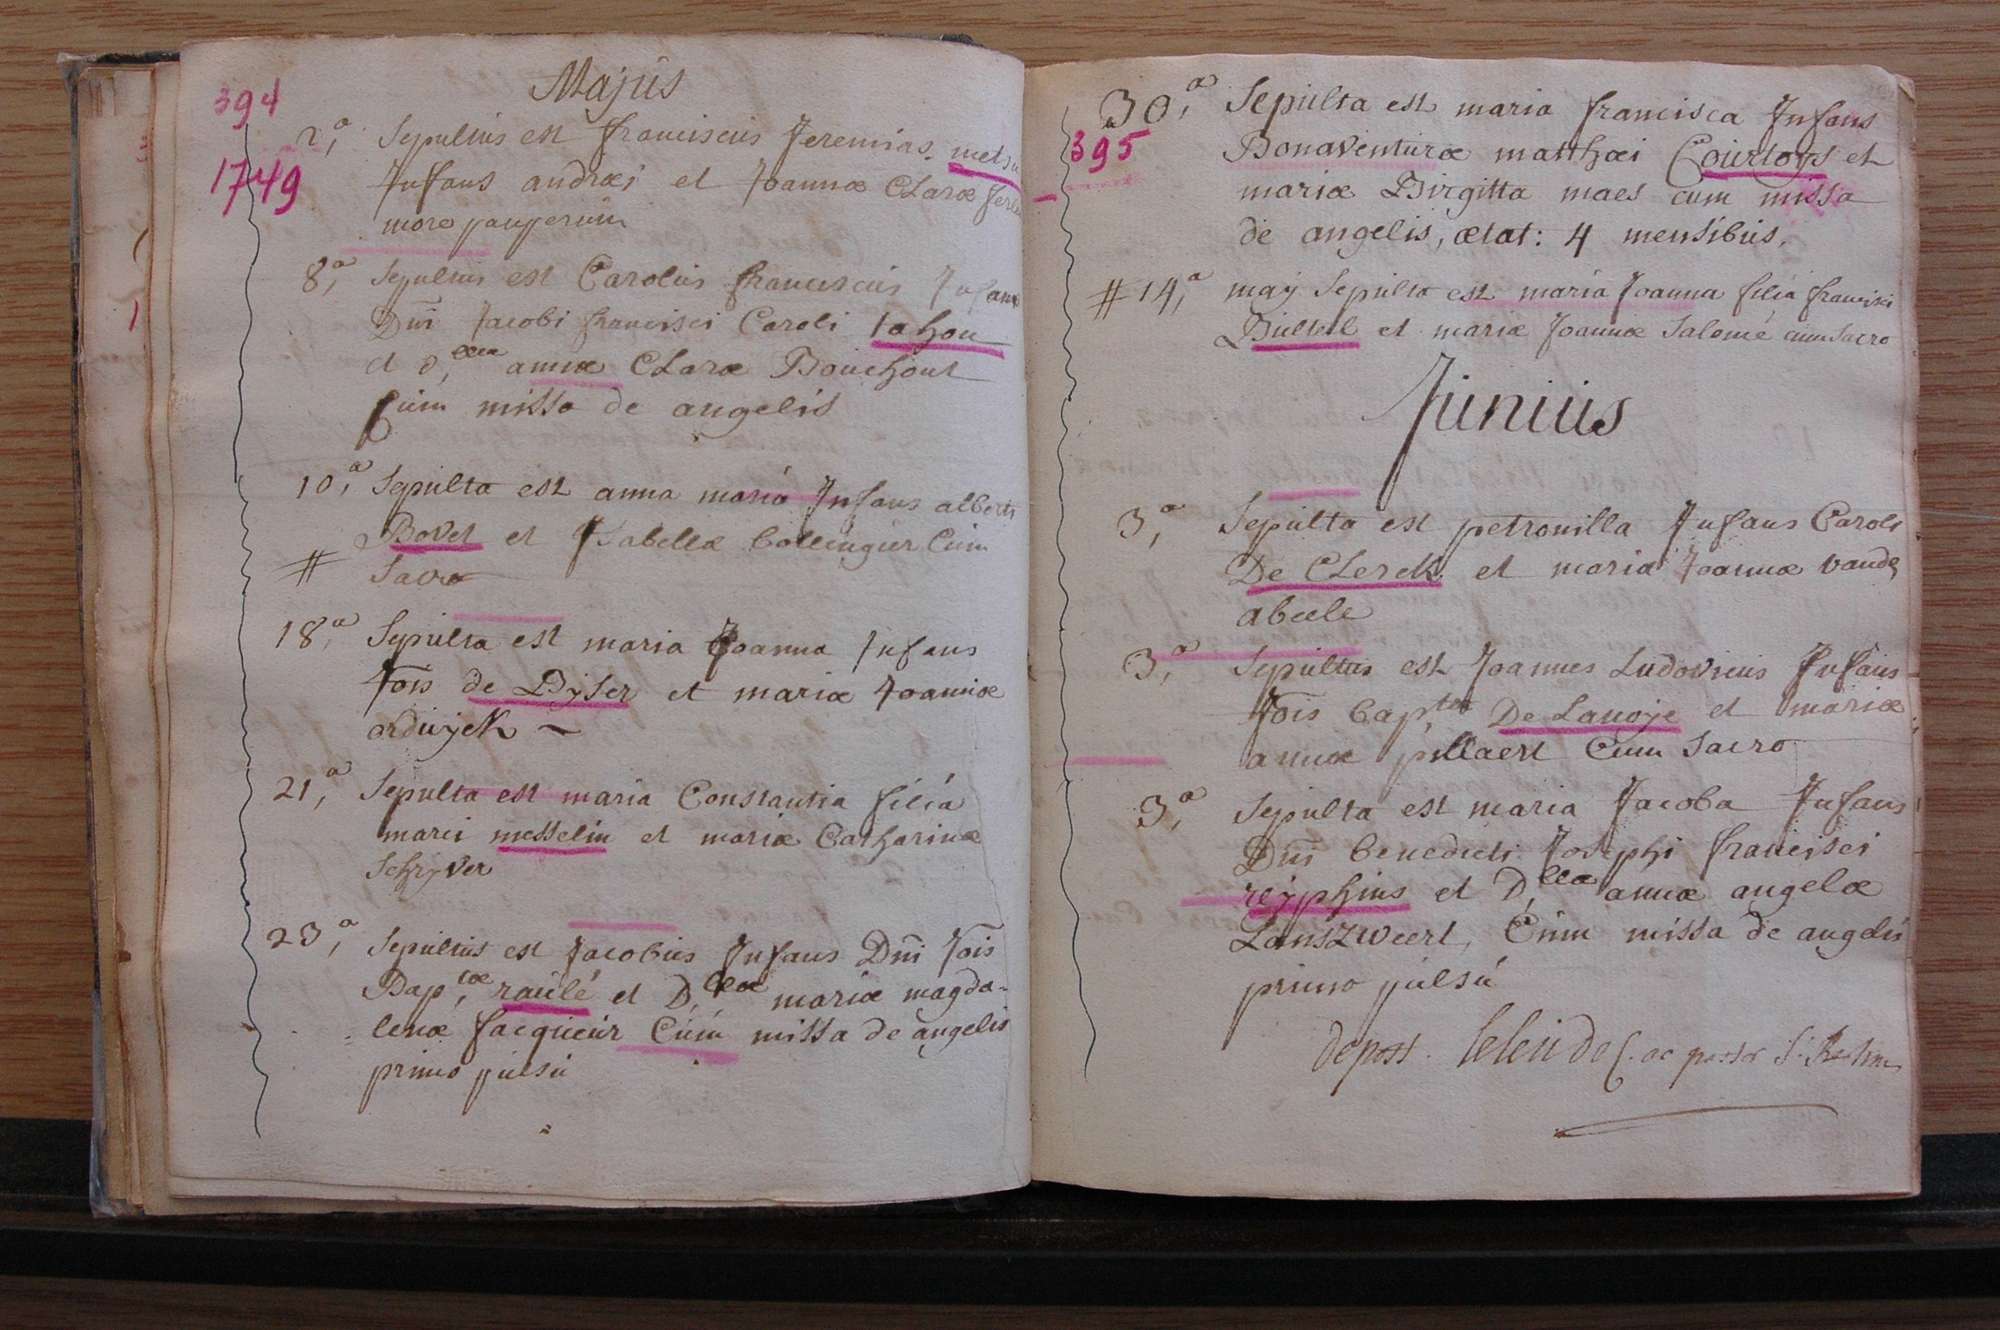 Majus
394
1749
2,a Sepultus est franciscus Jeremias metsu
Infans andreæ et Joannæ Claræ
more pauperum
8,a Sepultus est Carolus franciscus Infans
Dni Jacobi francisci Caroli
et D,llæ annæ Claræ Bouchout
Cum missa de angelis
10,a Sepulta est anna maria Infans alberti
Bovet et Isabellæ Collingier Cum
# Sacro
18,a Sepulta est maria Joanna Infans
Jois de Dyser et mariæ Joannæ
orduyck ~
21,a Sepulta est maria Constantia filia
marci messelin et mariæ Catharinæ
Schryver
23,a Sepultus est Jacobus Infans Dni Jois
Bap,tæ raulé et D,llæ mariæ magda-
lenæ facqueur Cum missa de angelis
primo pulsu
30,a Sepulta est maria francisca Infans
395
Bonaventuræ matthæi Courtoys et
mariæ Birgitta maes cum missa
de angelis, ætat: 4 mensibus.
# 14,a maÿ Sepulta est maria Joanna filia francisci
Bulteel et mariæ Joannæ Salomé cum sacro
Junius
3,a Sepulta est petronilla Infans Caroli
De Clerck et maria Joannæ vande
abeele
3,a Sepultus est Joannes Ludovicus Infans
Jois Bap,tæ De Lanoye et mariæ
annæ pillaert Cum Sacro
3,a Sepulta est maria Jacoba Infans
Dni benedicti Josephi francisci
reÿphins et D,llæ annæ angelæ
Lanszweert, Cum missa de angelis
primo pulsu